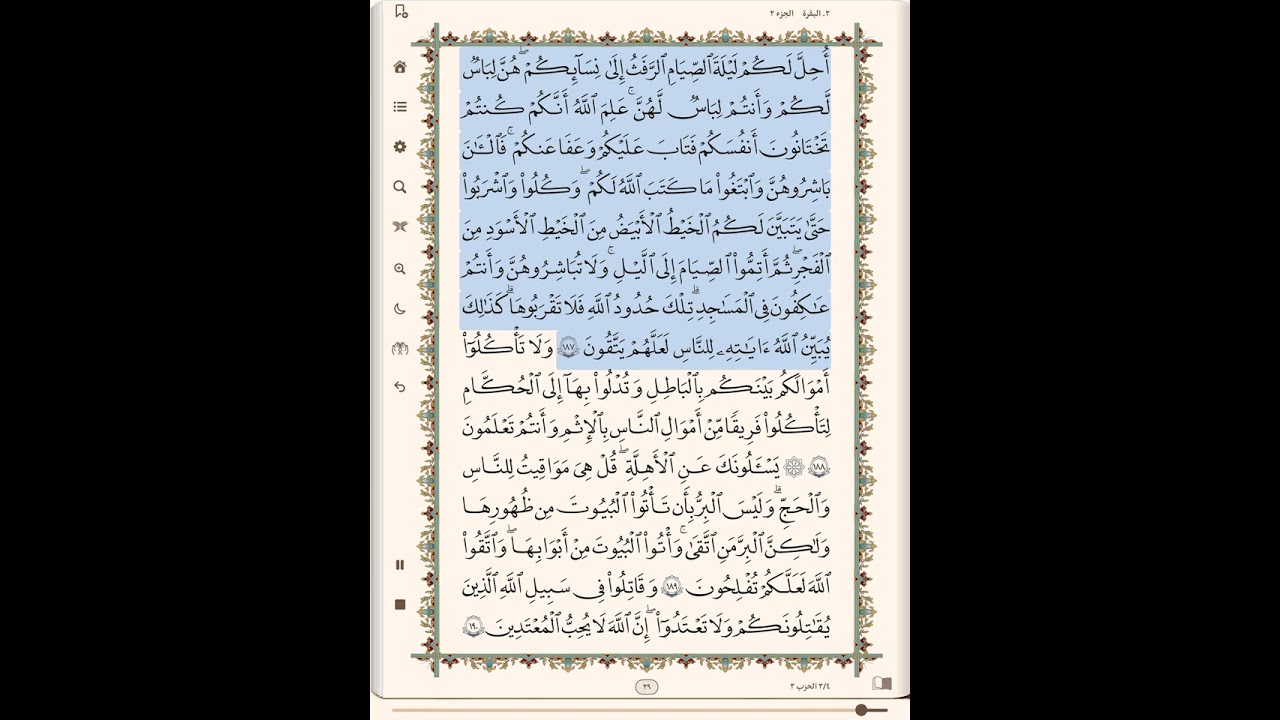 ٢. البقرة الجزء ٢
أُحِلَّ لَكُمْ لَيْلَةَ ٱلصِّيَامِ ٱلرَّفَثُ إِلَىٰ نِسَآئِكُمْ ۖ هُنَّ لِبَاسٌ
لَّكُمْ وَأَنتُمْ لِبَاسٌ لَّهُنَّ ۗ عَلِمَ ٱللَّهُ أَنَّكُمْ كُنتُمْ
تَخْتَانُونَ أَنفُسَكُمْ فَتَابَ عَلَيْكُمْ وَعَفَا عَنكُمْ ۖ فَٱلْـَٰٔنَ
بَٰشِرُوهُنَّ وَٱبْتَغُوا۟ مَا كَتَبَ ٱللَّهُ لَكُمْ ۚ وَكُلُوا۟ وَٱشْرَبُوا۟
حَتَّىٰ يَتَبَيَّنَ لَكُمُ ٱلْخَيْطُ ٱلْأَبْيَضُ مِنَ ٱلْخَيْطِ ٱلْأَسْوَدِ مِنَ
ٱلْفَجْرِ ۖ ثُمَّ أَتِمُّوا۟ ٱلصِّيَامَ إِلَى ٱلَّيْلِ ۚ وَلَا تُبَٰشِرُوهُنَّ وَأَنتُمْ
عَٰكِفُونَ فِى ٱلْمَسَٰجِدِ ۗ تِلْكَ حُدُودُ ٱللَّهِ فَلَا تَقْرَبُوهَا ۗ كَذَٰلِكَ
يُبَيِّنُ ٱللَّهُ ءَايَٰتِهِۦ لِلنَّاسِ لَعَلَّهُمْ يَتَّقُونَ ١٨٧ وَلَا تَأْكُلُوٓا۟
أَمْوَٰلَكُم بَيْنَكُم بِٱلْبَٰطِلِ وَتُدْلُوا۟ بِهَآ إِلَى ٱلْحُكَّامِ
لِتَأْكُلُوا۟ فَرِيقًا مِّنْ أَمْوَٰلِ ٱلنَّاسِ بِٱلْإِثْمِ وَأَنتُمْ تَعْلَمُونَ
١٨٨ ۞ يَسْـَٔلُونَكَ عَنِ ٱلْأَهِلَّةِ ۖ قُلْ هِىَ مَوَٰقِيتُ لِلنَّاسِ
وَٱلْحَجِّ ۗ وَلَيْسَ ٱلْبِرُّ بِأَن تَأْتُوا۟ ٱلْبُيُوتَ مِن ظُهُورِهَا
وَلَٰكِنَّ ٱلْبِرَّ مَنِ ٱتَّقَىٰ ۗ وَأْتُوا۟ ٱلْبُيُوتَ مِنْ أَبْوَٰبِهَا ۚ وَٱتَّقُوا۟
ٱللَّهَ لَعَلَّكُمْ تُفْلِحُونَ ١٨٩ وَقَٰتِلُوا۟ فِى سَبِيلِ ٱللَّهِ ٱلَّذِينَ
يُقَٰتِلُونَكُمْ وَلَا تَعْتَدُوٓا۟ ۚ إِنَّ ٱللَّهَ لَا يُحِبُّ ٱلْمُعْتَدِينَ ١٩٠
٢٩
٣/٤ الحزب ٣